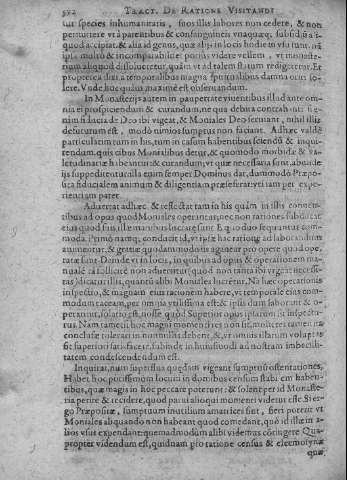 572 TRACT. DE RATIONE VISITANDI
tur species inhumanitatis, suos illis labores non cedere, & non
permittere vt à parentibus & consanguineis vnaquæq; subsidiú ali-
quod accipiat, & alia id genus, quæ alijs in locis hodie in vsu sunt.
ipla multò & incomparabiliter potius videre vellem, vt monaste-
rium aliquod dissolueretur, quàm vt ad talem statum redigeretur. Et
propterea dixi à temporalibus magna spiritualibus damna oriri so-
lere. Vnde hoc quidem maximè est obseruandum.
In Monasterijs autem in paupertate viuentibus illud ante om-
nia est prospiciendum & curandum, ne qua debita contrahant: si e-
nim fiducia de Deo ibi vigeat, & Moniales Deo seruiant, nihil illis
defuturum est, modò nimios sumptus non faciant. Adhæc valdè
particulatim tum in his, tum in casum habentibus sciendū & inqui-
rendum, quis cibus Monialibus detur, & quomodo morbidæ & va-
letudinariæ habeantur & curandum, vt quæ necessaria sunt, abundè
ijs suppeditentur: illa enim semper Dominus dat, dummodò Præpo-
sita fiducialem animum & diligentiam præseferat, vti iam per expe-
rientiam patet.
Aduertat adhæc & reflectat tam in his quàm in illis conuen-
tibus ad opus quod Moniales operantur, nec non rationes subducat
eius quod suis illæ manibus lucratæ sunt. Ex quo duo sequuntur commoda.
Primò namq; conducit id, vt ipsæ hac ratione ad laborandum
animentur, & gratæ quodammodo is agantur pro opere quod ope-
ratæ sunt. Deinde vt in locis, in quibus ad opus & operationem ma-
nualē tā sollicitè non aduertitur (quod non tanta ibi vrgeat necessi-
tas) dicatur illis, quantū alibi Moniales lucrētur. Na hæc operationis
inspectio, & magnam eius rationem habere, vt temporale eius com-
modum taceam, per omnia vtilissima est: & ipsis dum laborant & o-
perantur, solatio est, nosse quòd Superior opus ipsarum sit inspectu-
rus. Nam tametsi hoc magni momenti res non sit, mulieres tamen in-
conclusæ tolerari in nonnullis debent, &, vt omnis illarum voluptas
sit superiori satisfacere, subinde in huiusmodi ad nostram imbecilli-
tatem condescendendum est.
Inquirat, num superfluæ quædam vigeant sumptuum ostentationes,
Habet hoc potissimum locum in domibus censum stabilem haben-
tibus, quæ magis in hoc peccare poterunt: & solent per id Monaste-
ria perire & recidere, quod parui alioqui momenti videtur esse. Si er-
go Præpositæ, sumptuum inutilium amatrices sint, fieri poterit vt
Moniales aliquando non habeant quod comedant, quò id illæ in a-
lios vsus expendant: quemadmodum alibi videmus cōtingere. Qua-
propter videndum est, quidnam pro ratione census & eleemosynæ
quæ